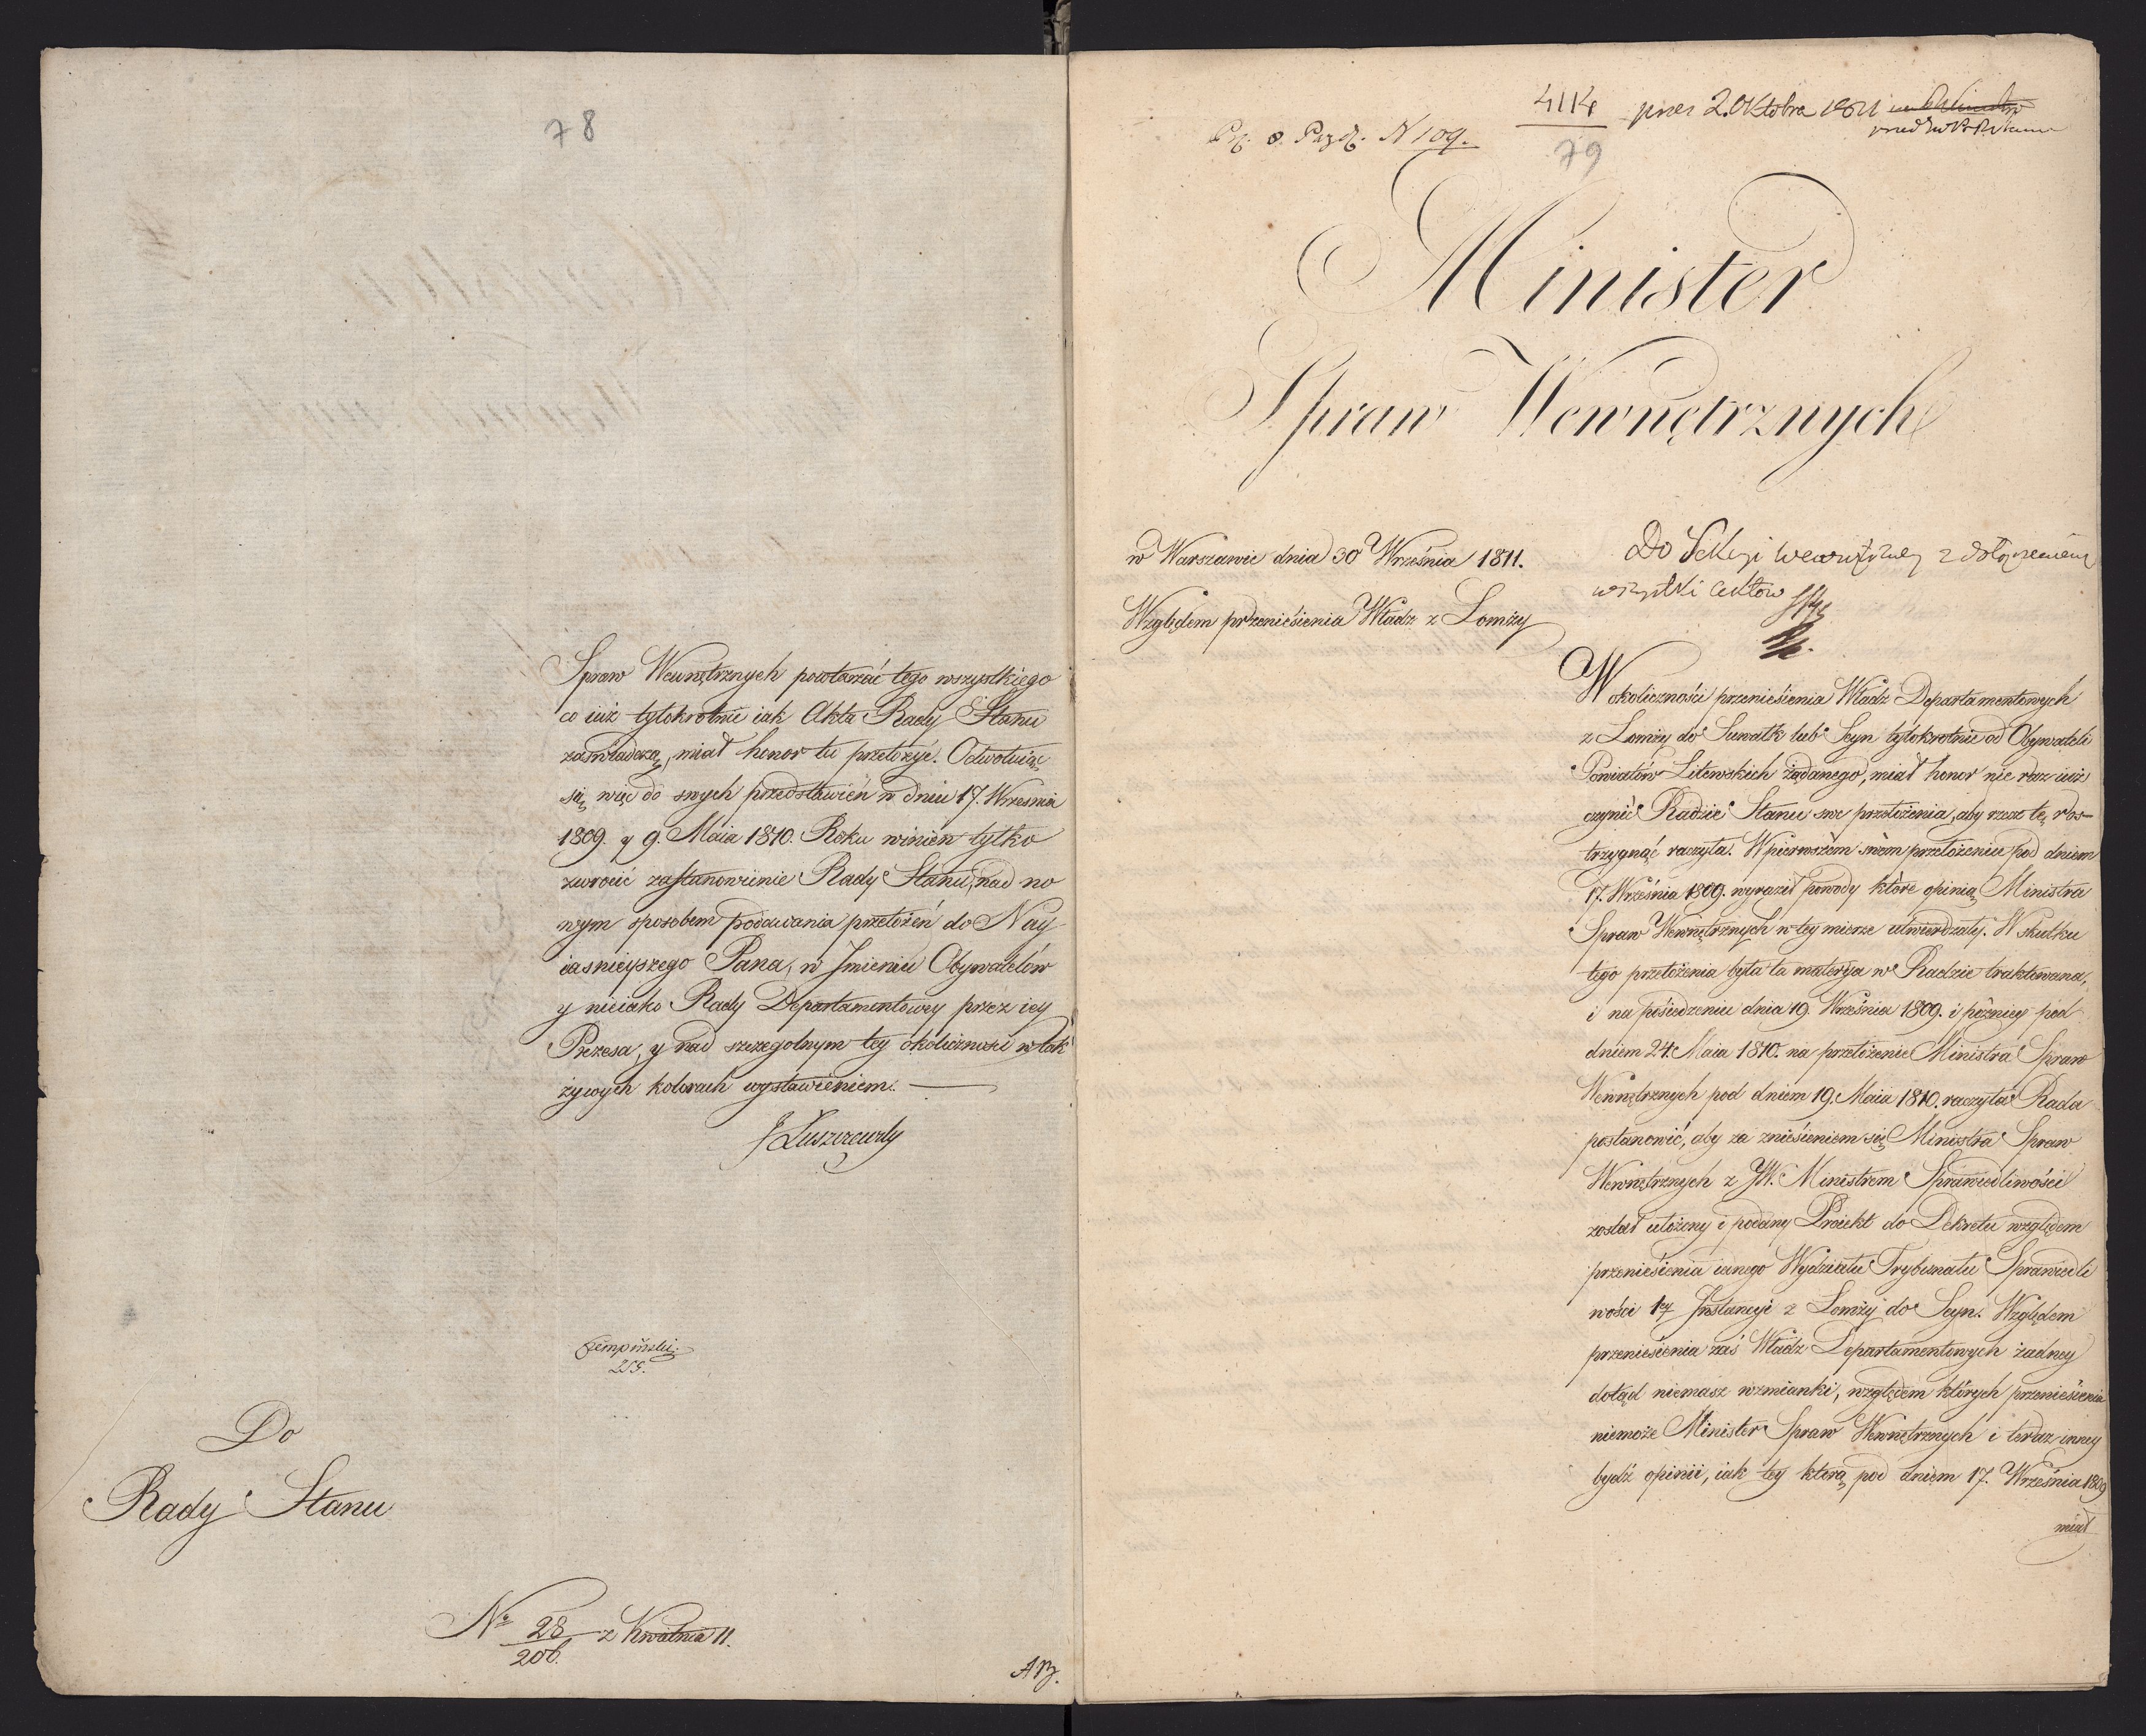 78
Spraw Wewnętrznych powtarzać tego wszystkiego
co iuż tylokrotnie iak Akta Rady Stanu
zaświadczą, miał honor tu przełożyć. Odwołuiąc
się więc do swych przedstawień w dniu 17. Wrzesnia
1809. y 9. Maia 1810. Roku winien tylko
zwrocić zastanowienie Rady Stanu, nad no
wym sposobem podawania przełożeń do Nay
iasnieyszego Pana, w Imieniu Obywatelów
y nieiako Rady Departamentowey przez iey
Prezesa, y nad szczegolnym tey okoliczności w tak
żywych kolorach wystawieniem. —
J Łuszczewsky
Do
Rady Stanu
No 28/206. z Kwietnia 11.
4114
79
pres 2. Oktobra 1811
N 109.
Minister
Spraw Wewnętrznych
w Warszawie dnia 30 Września 1811.
Względem przeniesienia Władz z Łomży
Do Sekcyi wewnętrzney z dołączeniem
wszystki aktow
W okoliczności przeniesienia Władz Departamentowych
z Łomży do Suwałk lub Seyn tylokrotnie od Obywateli
Powiatów Litewskich żądanego, miał honor nie raz iuż
czynić Radzie Stanu swe przełożenia, aby rzecz tę ros-
trzygnąć raczyła. W pierwszem swém przełożeniu pod dniem
17. Września 1809. wyraził powody które opinią Ministra
Spraw Wewnętrznych w tey mierze utwierdzały. W skutku
tego przełożenia była ta materya w Radzie traktowana,
i na posiedzeniu dnia 19. Września 1809. i pózniey pod
dniem 24. Maia 1810. na przełożenie Ministra Spraw
Wewnętrznych pod dniem 19. Maia 1810. raczyła Rada
postanowić, aby za zniesieniem się Ministra Spraw
Wewnętrznych z JW. Ministrem Sprawiedliwości
został ułożony i podany Proiekt do Dekretu względem
przeniesienia iednego Wydziału Trybunału Sprawiedli
wości 1ey Instancyi z Łomży do Seyn. Względem
przeniesienia zaś Władz Departamentowych żadney
dotąd niemasz wzmianki, względem których przeniesienia
niemoże Minister Spraw Wewnętrznych i teraz inney
bydź opinii, iak tey którą pod dniem 17. Września 1809
miał